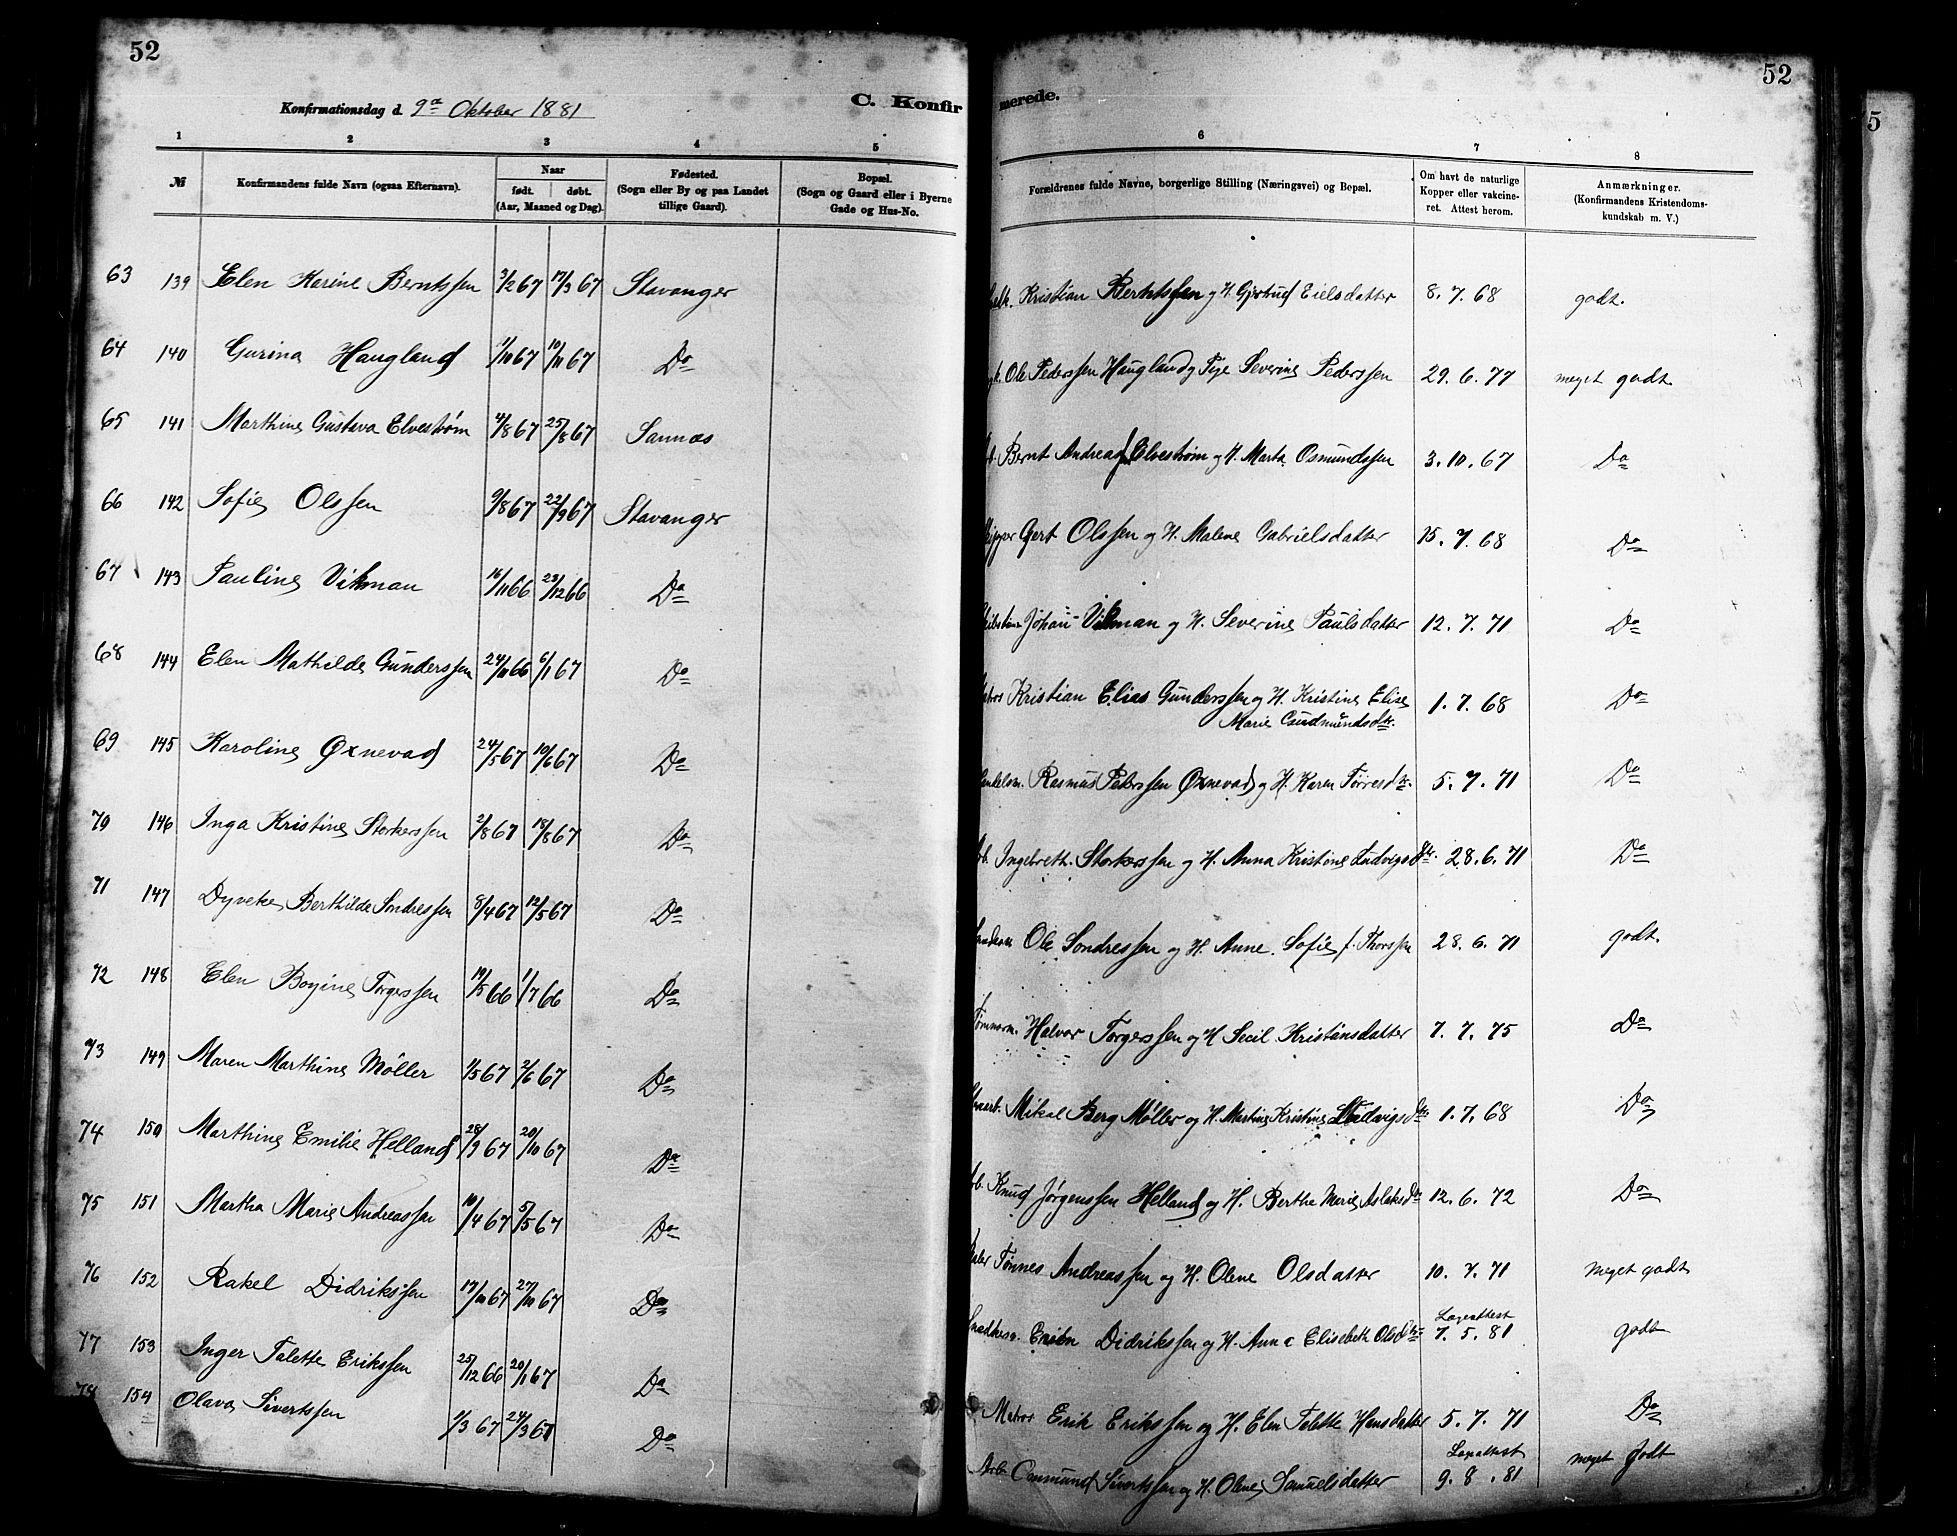 52
Konfirmationsdag d. 9de Oktober 1881
C. Konfir
1 2 3 4 5
№
Konfirmandens fulde Navn (ogsaa Efternavn).
Naar
født. døbt.
(Aar, Maaned og Dag).
Fødested.
(Sogn eller By og paa Landet
tillige Gaard).
Bopæl.
(Sogn og Gaard eller i Byerne
Gade og Hus-No.
63 139 Elen Karine Berntssen 3/2 67 17/3 67 Stavanger
64 140 Gurina Haugland 1/10 67 10/11 67 Do
65 141 Marthine Gustava Elvestrøm 4/8 67 25/8 67 Sannes
66 142 Sofie Olssen 9/8 67 22/9 67 Stavanger
67 143 Pauline Vikman 16/11 66 23/12 66 Do
68 144 Elen Mathilde Gunderssen 24/11 66 6/1 67 Do
69 145 Karoline Øxnevad 24/5 67 10/6 67 Do
70 146 Inga Kristine Storkerssen 2/8 67 18/8 67 Do
71 147 Dyveke Berthilde Sondressen 8/4 67 12/5 67 Do
72 148 Elen Bogine Torgerssen 19/5 66 1/7 66 Do
73 149 Maren Marthine Møller 1/5 67 2/6 67 Do
74 150 Marthine Emilie Helland 28/9 67 20/10 67 Do
75 151 Martha Marie Andreassen 10/4 67 5/5 67 Do
76 152 Rakel Didrikssen 17/10 67 27/10 67 Do
77 153 Inger Talette Erikssen 25/12 66 20/1 67 Do
78 154 Olava Sivertssen 1/3 67 24/3 67 Do
52
merede.
6 7 8
Forældrenes fulde Navne, borgerlige Stilling (Næringsvei) og Bopæl.
Om havt de naturlige
Kopper eller vakcine-
ret. Attest herom.
Anmærkninger.
(Konfirmandens Kristendoms-
kundskab m. V.)
Kristian Berntssen og H. Gjertrud Eielsdatter 8. 7. 68 godt.
Ole Pederssen Haugland og Pige Severine Pederssen 29. 6. 77 meget godt
Bernt Andreas Elvestrøm og H. Marta Osmundssen 3. 10. 67 Do
Skipper Gert Olssen og H. Malene Gabrielsdatter 15. 7. 68 Do
Johan Vikman og H. Severine Paulsdatter 12. 7. 71 Do
Matros Kristian Elias Gunderssen og H. Kristine Elise
Marie Gudmundsdtr. 1. 7. 68 Do
Handelsm. Rasmus Peterssen Øxnevad og H. Karen Tørresdtr. 5. 7. 71 Do
Arb. Ingebreth. Storkerssen og H. Anna Kristine Ludvigsdtr. 28. 6. 71 Do
Ole Sondressen og H. Anne Sofie f. Thorssen 28. 6. 71 godt.
Tømmerm. Halvor Torgerssen og H Secil Kristiansdatter 7. 7. 75 Do
Mikal Berg Møller og H. Martine Kristine Ludvigsdtr 1. 7. 68 Do
Arb. Knud Jørgenssen Helland og H. Berthe Marie Aslaksdtr 12. 6. 72 Do
Maler Tønnes Andreassen og H. Olene Olsdatter 10. 7. 71 meget godt
Didrikssen og H. Anne Elisebeth Olsdtr
Lægeattest
7. 5. 81 godt
Matros Erik Erikssen og H. Elen Talette Hansdatter 5. 7. 71 Do
Arb. Osmund Sivertssen og H. Olene Samuelsdatter
Lægeattest
9. 8. 81 meget godt
5